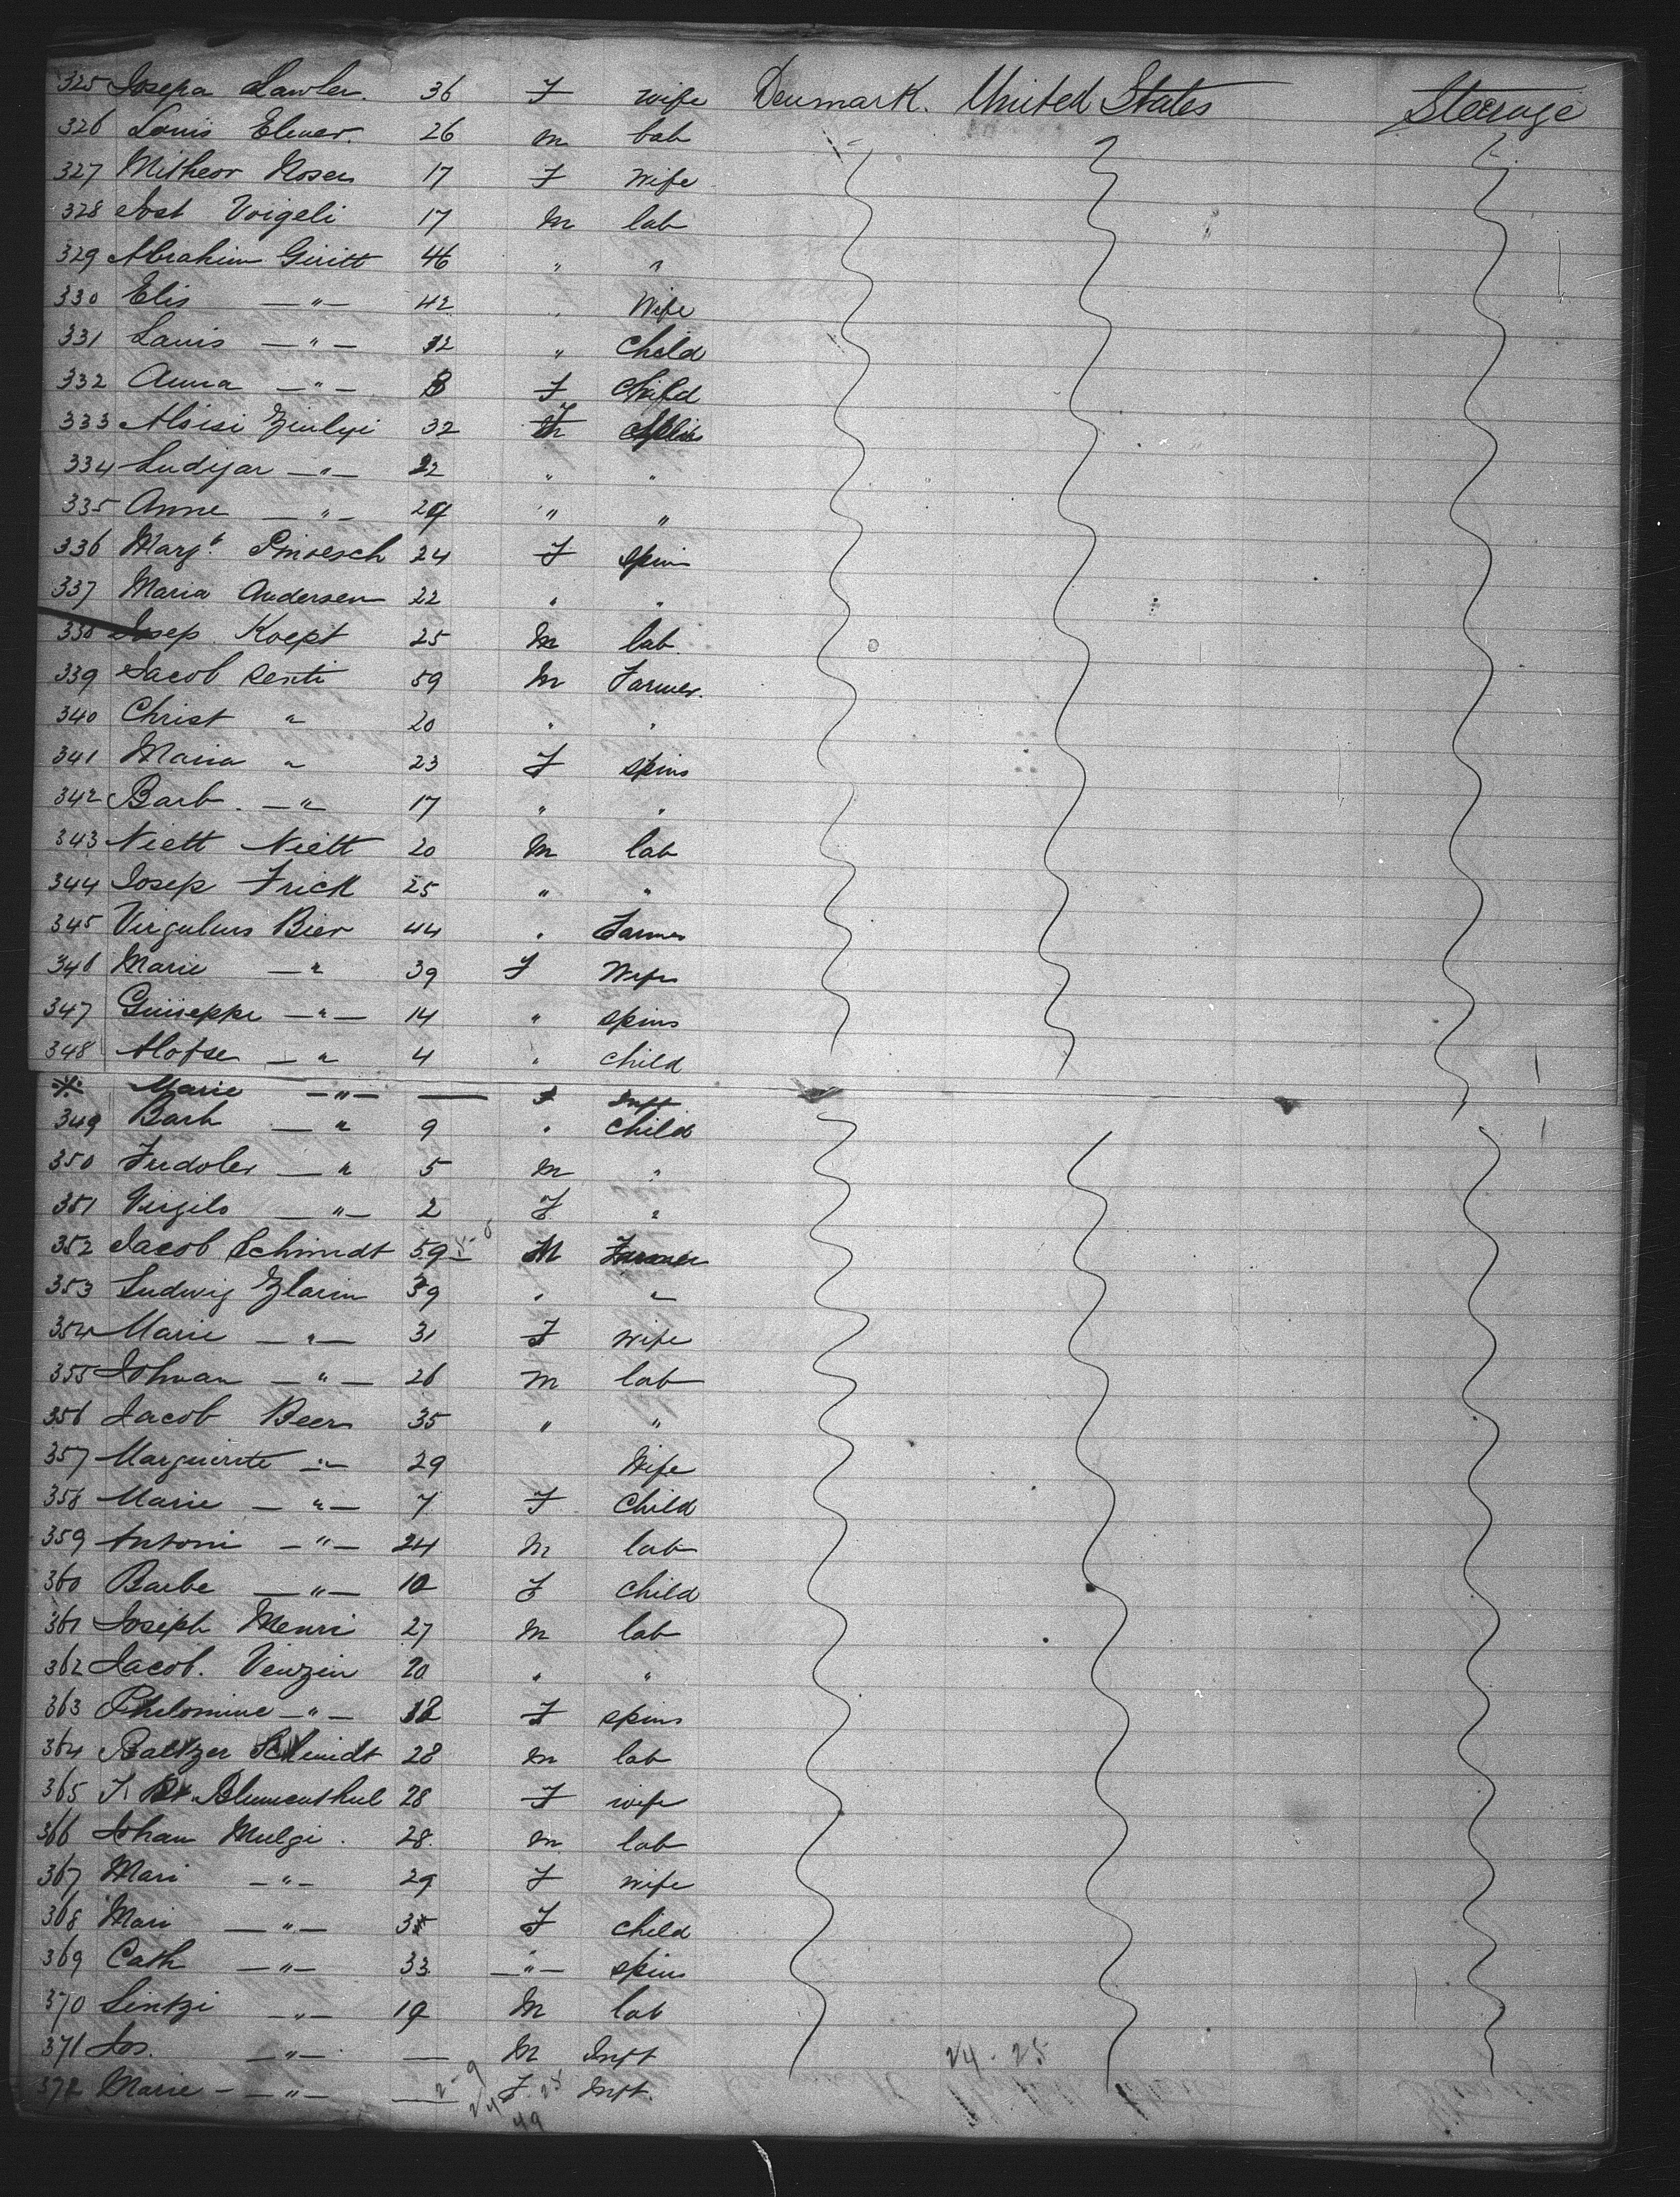 325 Josepa Lawler. 36 F wife Denmark. United States Steerage
326 Louis Elmer. 26 m lab
327 Mitheor Moser 17 F Wife
328 Jost Voigeli 17 M lab
329 Abrahim Giritt 46 " "
330 Elis — " — 42 " Wife
331 Lauis — " — 12 " Child
332 Anna — " — 8 F Child
333 Aloisi 32 F
334 — " — 22 " "
335 Anne — " — 29 " "
336 Margt. 24 F spin
337 Maria Andersen 22 " "
338 Josep Koept 25 M lab.
339 Jacob Senti 59 M Farmer.
340 Christ " 20 " "
341 Maria " 23 F spins
342 Barb. — " 17 " "
343 Niett Niett 20 M lab
344 Josep Frick 25 " "
345 Virgulius Bier 44 " Farmer
346 Marie — " 39 F Wife
347 Guiseppe — " — 14 " spins
348 — " 4 " child
Marie — " — — F Inft
349 Barb — " 9 " child
350 — " 5 M "
351 Virgilo — " — 2 F "
352 Jacob Schmidt 59 M Farmer
353 Ludwig 39 " "
354 Marie — " — 31 F wife
355 Johnan — " — 26 M lab
356 Jacob Beer 35 " "
357 Marguerite — " — 29 Wife
358 Marie — " — 7 F Child
359 Antoni — " — 24 M lab
360 Barbe — " — 10 F child
361 Joseph Menri 27 M lab
362 Jacob. Venzin 20 " "
363 Philomine — " — 18 F spins
364 Baltzer Schmidt 28 m lab
365 Blumenthul 28 F wife
366 Johan Mulgi. 28. m lab
367 Mari — " — 29 F wife
368 Mari — " — F child
369 Cath — " — 33 — " — spins
370 Sintzi — " — 19 M lab
371 Jos. — " — — M Inft 24 - 25
372 Marie — " — — F Inft.
49